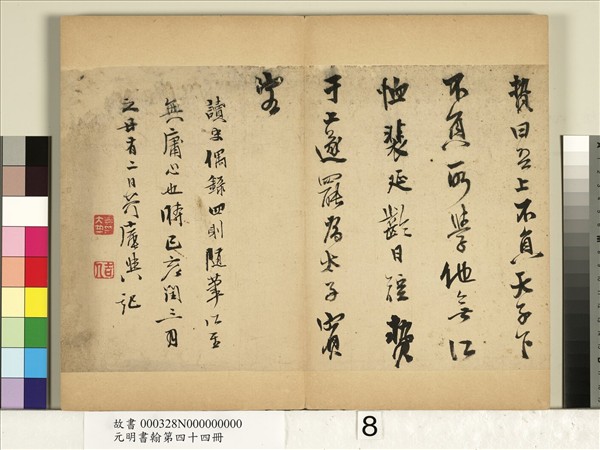 贄曰吾上不負天子下
不負所學他無所
恤裴延齡日短贄
于上遂罷為太子賓
客
讀史偶錄四則隨筆以書
無庸心也時己亥閏三月
之廿有二日
記
故書 000328N000000000
元明書翰第四十四冊
8